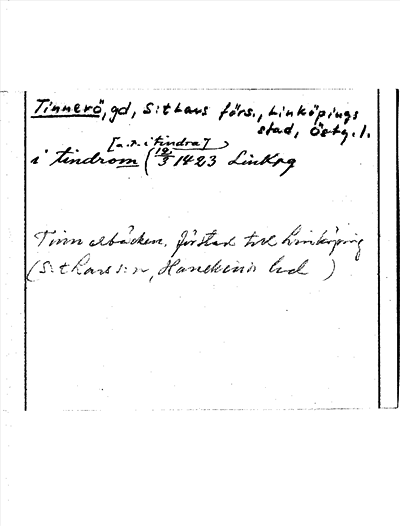 Tinnerö, gd, S:t Lars förs., Linköpings
stad, Östg. l.
[a.r. i tindra]
i tindrom (12/3 1423 Linkpg
Tinnerbäcken, förstad till Linköping
(S:t Lars s:n, Hanekinds hd )